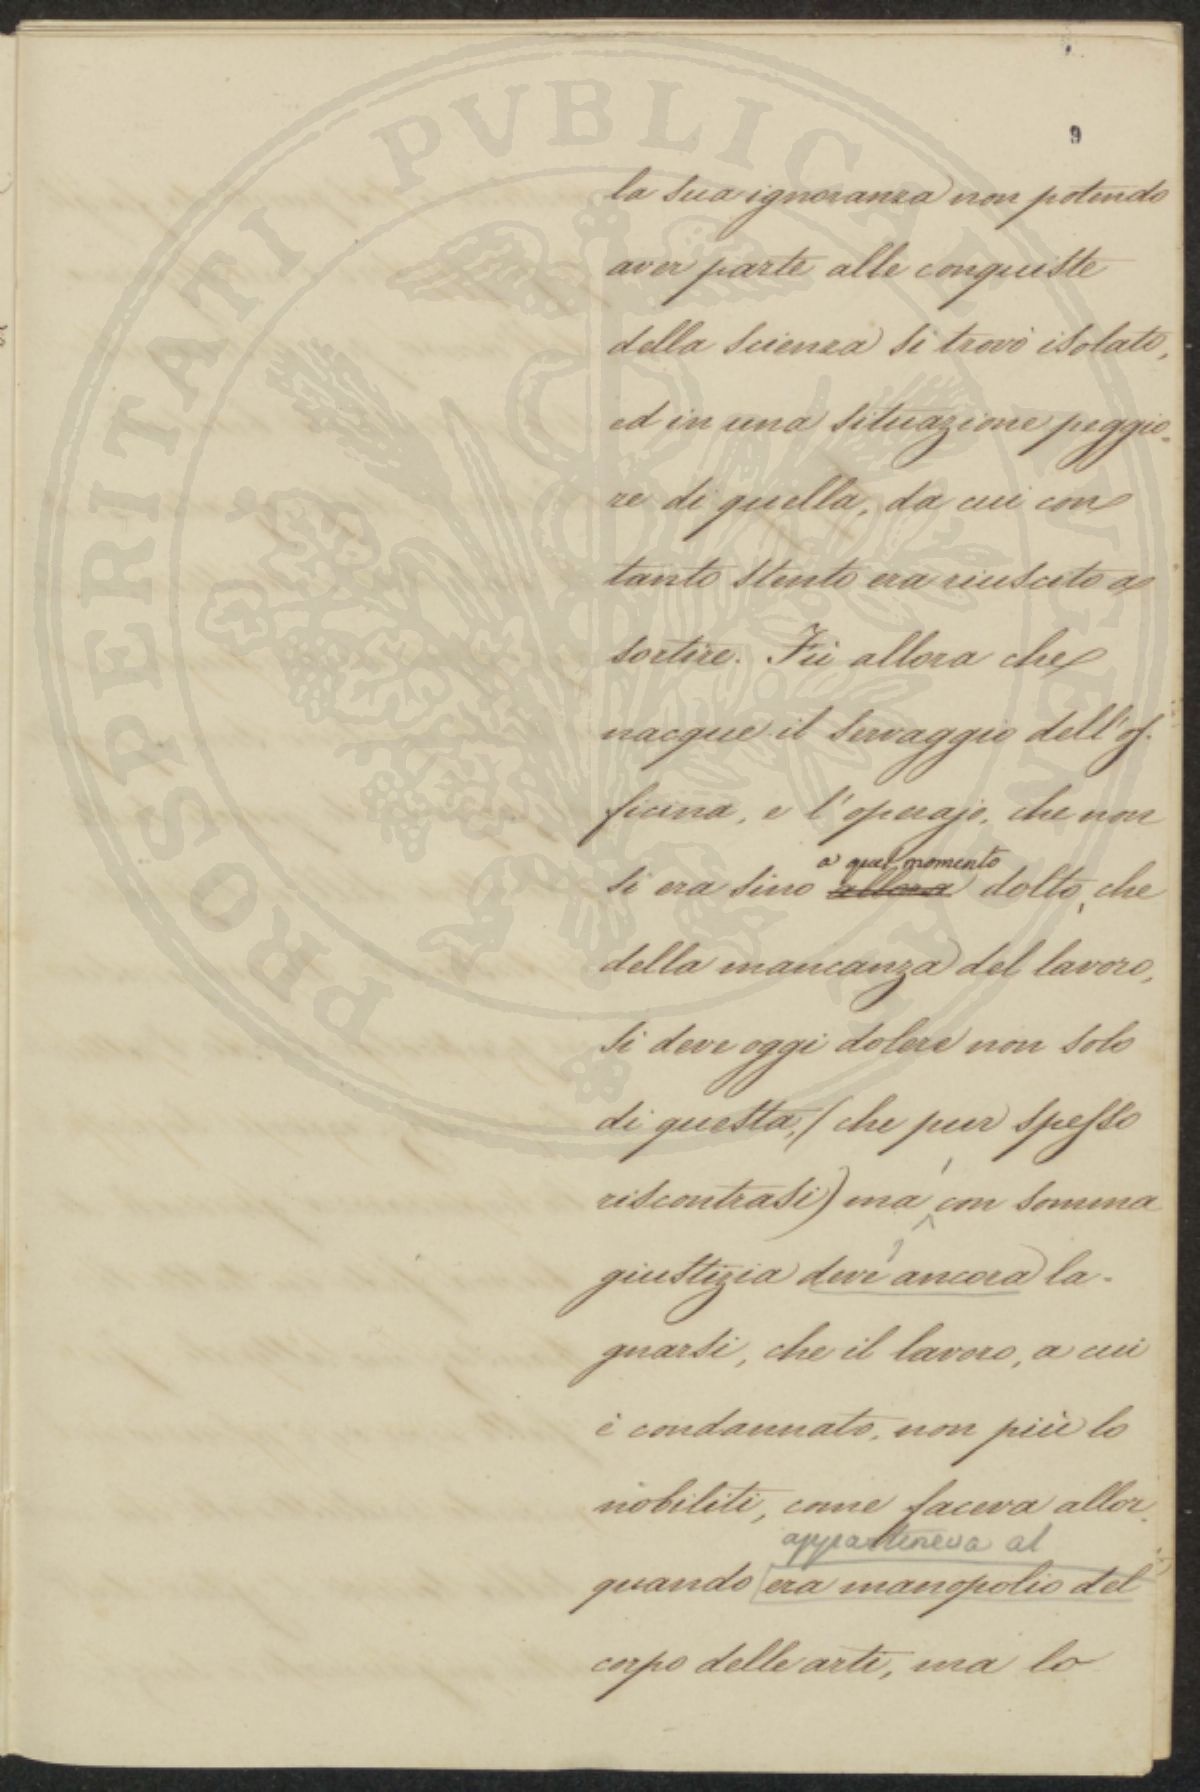 9
la sua ignoranza non potendo
aver parte alle conquiste
della scienza si trovò isolato,
ed in una situazione peggio-
re di quella, da cui con
tanto stento era riuscito a
sortire. Fù allora che
nacque il servaggio dell'of-
ficina, e l'operajo, che non
a quel momento
si era sino allora dolto, che
della mancanza del lavoro,
si deve oggi dolere non solo
di questa, (che pur spesso
riscontrasi) ma con somma
giustizia deve ancora la-
gnarsi, che il lavoro, a cui
è condannato, non più lo
nobiliti, come faceva allor
apparteneva al
quando era manopolio del
corpo delle arti, ma lo
PROSPERITATI PVBLICAE